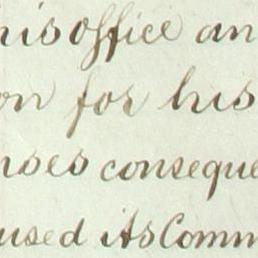 his office an
on for his
nses conseque
used its Comm